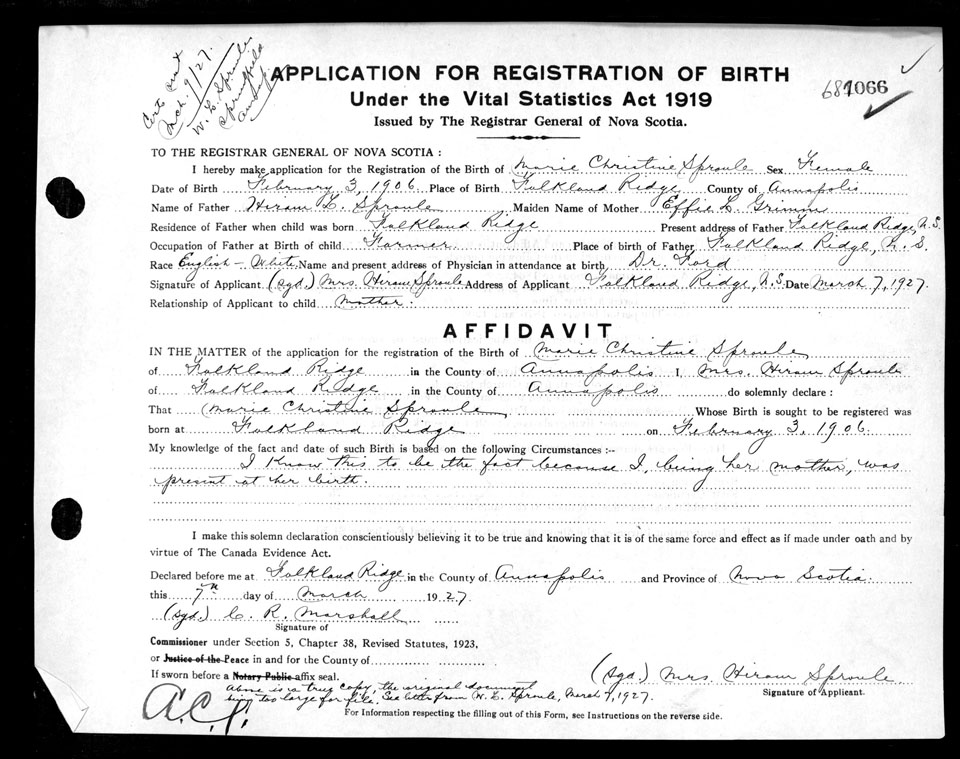 Certs sent
Mch. 9/27.
W. L. Sproule
Springfield
APPLICATION FOR REGISTRATION OF BIRTH
68 1066
Under the Vital Statistics Act 1919
Issued by The Registrar General of Nova Scotia.
TO THE REGISTRAR GENERAL OF NOVA SCOTIA :
I hereby make application for the Registration of the Birth of Marie Christine Sproule Sex Female
Date of Birth February 3, 1906 Place of Birth Falkland Ridge County of Annapolis
Name of Father Hiram L. Sproule Maiden Name of Mother Effie L. Grimm
Residence of Father when child was born Falkland Ridge Present address of Father Falkland Ridge, N.S.
Occupation of Father at Birth of child Farmer Place of birth of Father Falkland Ridge, N.S.
Race English - White Name and present address of Physician in attendance at birth Dr. Ford
Signature of Applicant (sgd.) Mrs. Hiram Sproule Address of Applicant Falkland Ridge, N.S. Date March 7, 1927.
Relationship of Applicant to child Mother.
AFFIDAVIT
IN THE MATTER of the application for the registration of the Birth of Marie Christine Sproule
of Falkland Ridge in the County of Annapolis I, Mrs. Hiram Sproule
of Falkland Ridge in the County of Annapolis do solemnly declare :
That Marie Christine Sproule Whose Birth is sought to be registered was
born at Falkland Ridge on February 3, 1906.
My knowledge of the fact and date of such Birth is based on the following Circumstances :--
I know this to be the fact because I, being her mother, was
present at her birth.
I make this solemn declaration conscientiously believing it to be true and knowing that it is of the same force and effect as if made under oath and by
virtue of The Canada Evidence Act.
Declared before me at Falkland Ridge in the County of Annapolis and Province of Nova Scotia.
this 7th day of March 1927
(sgd.) C. R. Marshall
Signature of
Commissioner under Section 5, Chapter 38, Revised Statutes, 1923,
or Justice of the Peace in and for the County of
If sworn before a Notary Public affix seal.
(sgd.) Mrs. Hiram Sproule
Signature of Applicant.
Above is a true copy, the original document
being too large for file. See letter from W. L. Sproule, March 7, 1927.
A.C.J.
For Information respecting the filling out of this Form, see Instructions on the reverse side.